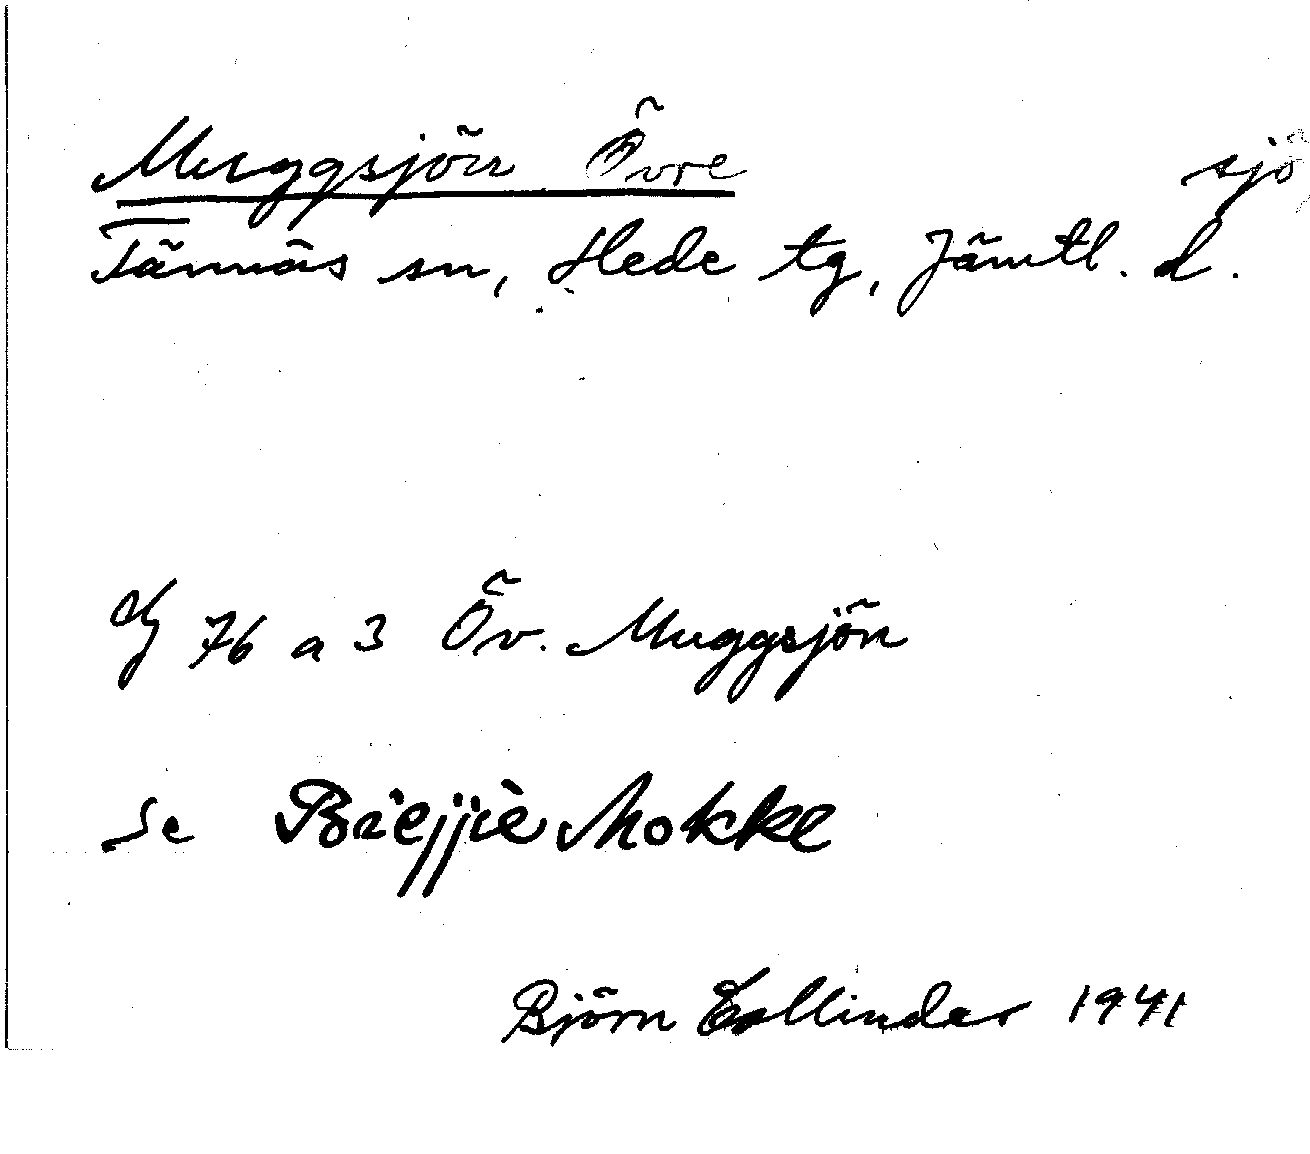 Muggsjön Övre sjö
Tännäs sn, Hede tg, Jämtl. d.
76 a 3 Öv. Muggsjön
se Bɑ̀ejjie Mokke
Björn Collinder 1941